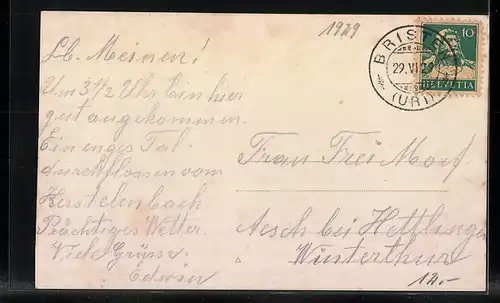 1929
BRISTEN
29.VI.29
(URI)
10
HELVETIA
Lb. Meinen!
Um 3 1/2 Uhr bin hier
gut angekommen.
Ein enges Tal
durchflossen vom
Kerstelenbach
Prächtiges Wetter.
Viele Grüsse.
Edwin
Frau Frei Morf.
Aesch bei Hettlingen
Winterthur
12.-